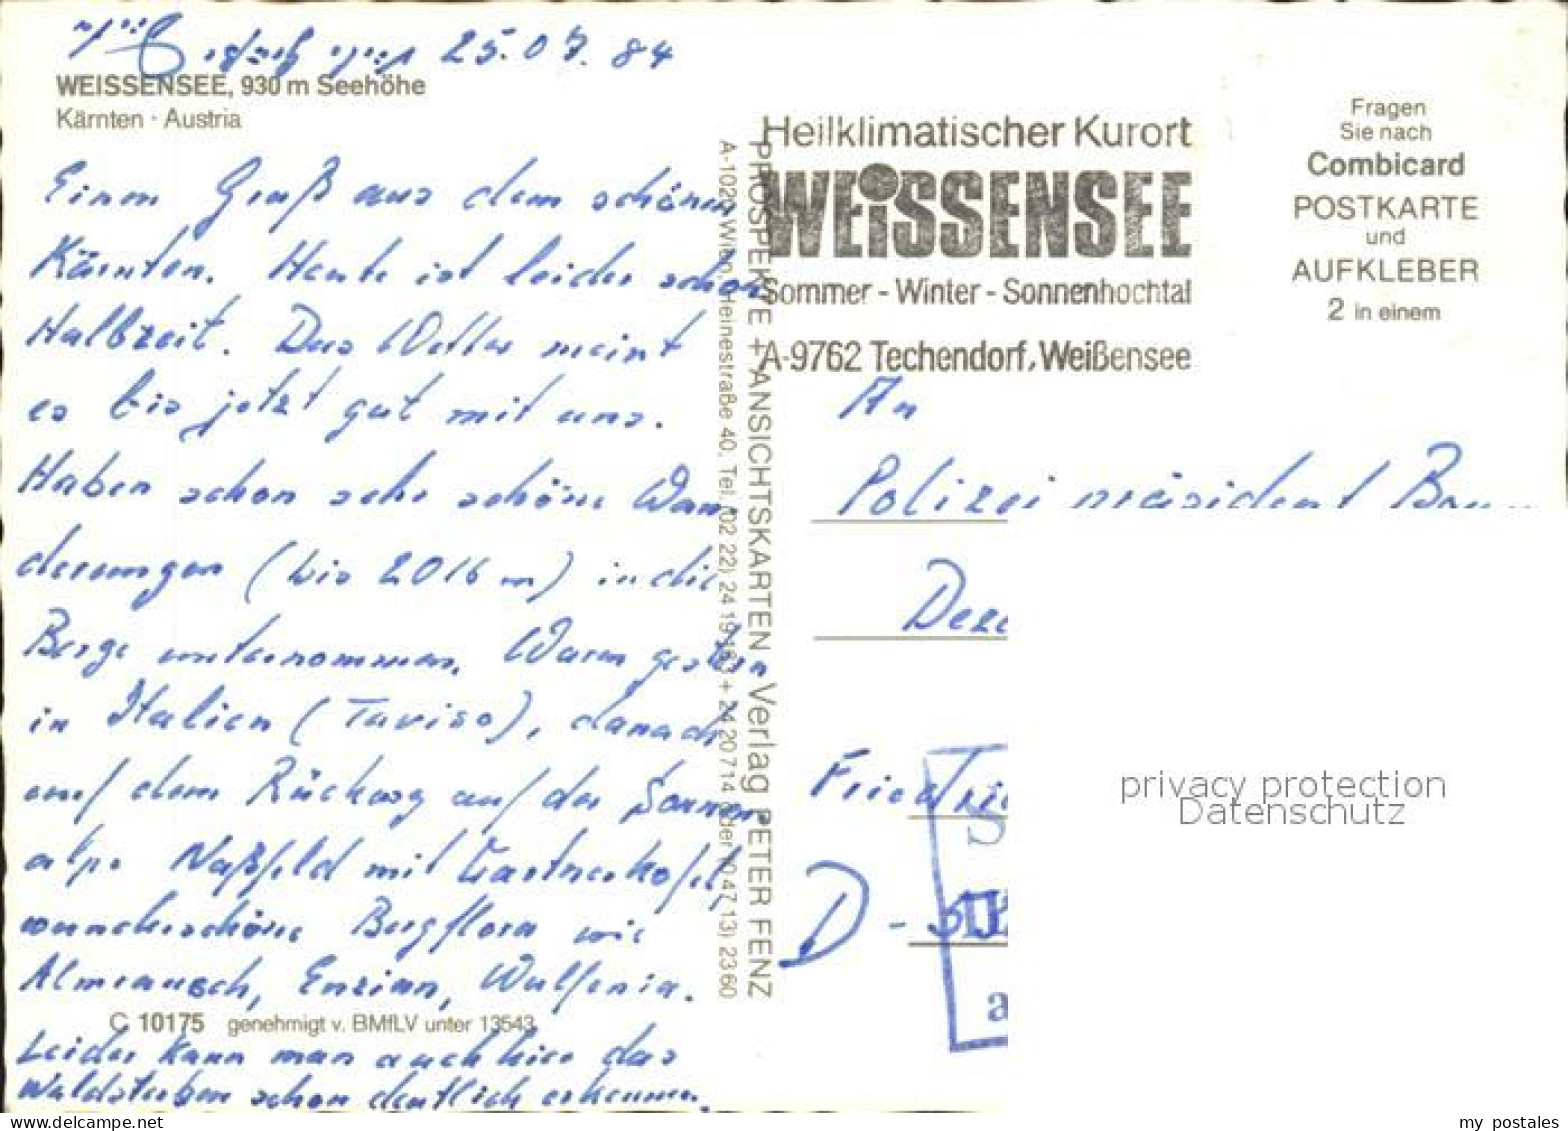 25.07.84
WEISSENSEE, 930 m Seehöhe
Kärnten · Austria
Einen Gruß aus dem schönen
Kärnten. Heute ist leider schon
Halbzeit. Das Wetter meint
es bis jetzt gut mit uns.
Haben schon sehr schöne Wan
derungen (bis 2016 m) in die
Berge unternommen. Waren gestern
in Italien (Taviso), danach
auf dem Rückweg auf der Sonnen
alpe Naßfeld mit Gartnerkofel,
wunderschöne Bergflora wie
Almrausch, Enzian, Wulfenia.
C 10175 genehmigt v. BMfLV unter 13543
Leider kann man auch hier das
Waldsterben schon deutlich erkennen.
PROSPEKTE + ANSICHTSKARTEN Verlag PETER FENZ
A-1020 Wien, Heinestraße 40, Tel. (02 22) 24 19 + 24 20 714 oder (0 47 13) 23 60
Heilklimatischer Kurort
WEiSSENSEE
Sommer - Winter - Sonnenhochtal
A-9762 Techendorf, Weißensee
Fragen
Sie nach
Combicard
POSTKARTE
und
AUFKLEBER
2 in einem
An
Polizeipräsident
Deze
Friedri
D -
a
privacy protection
Datenschutz
www.delcampe.net
my_postales